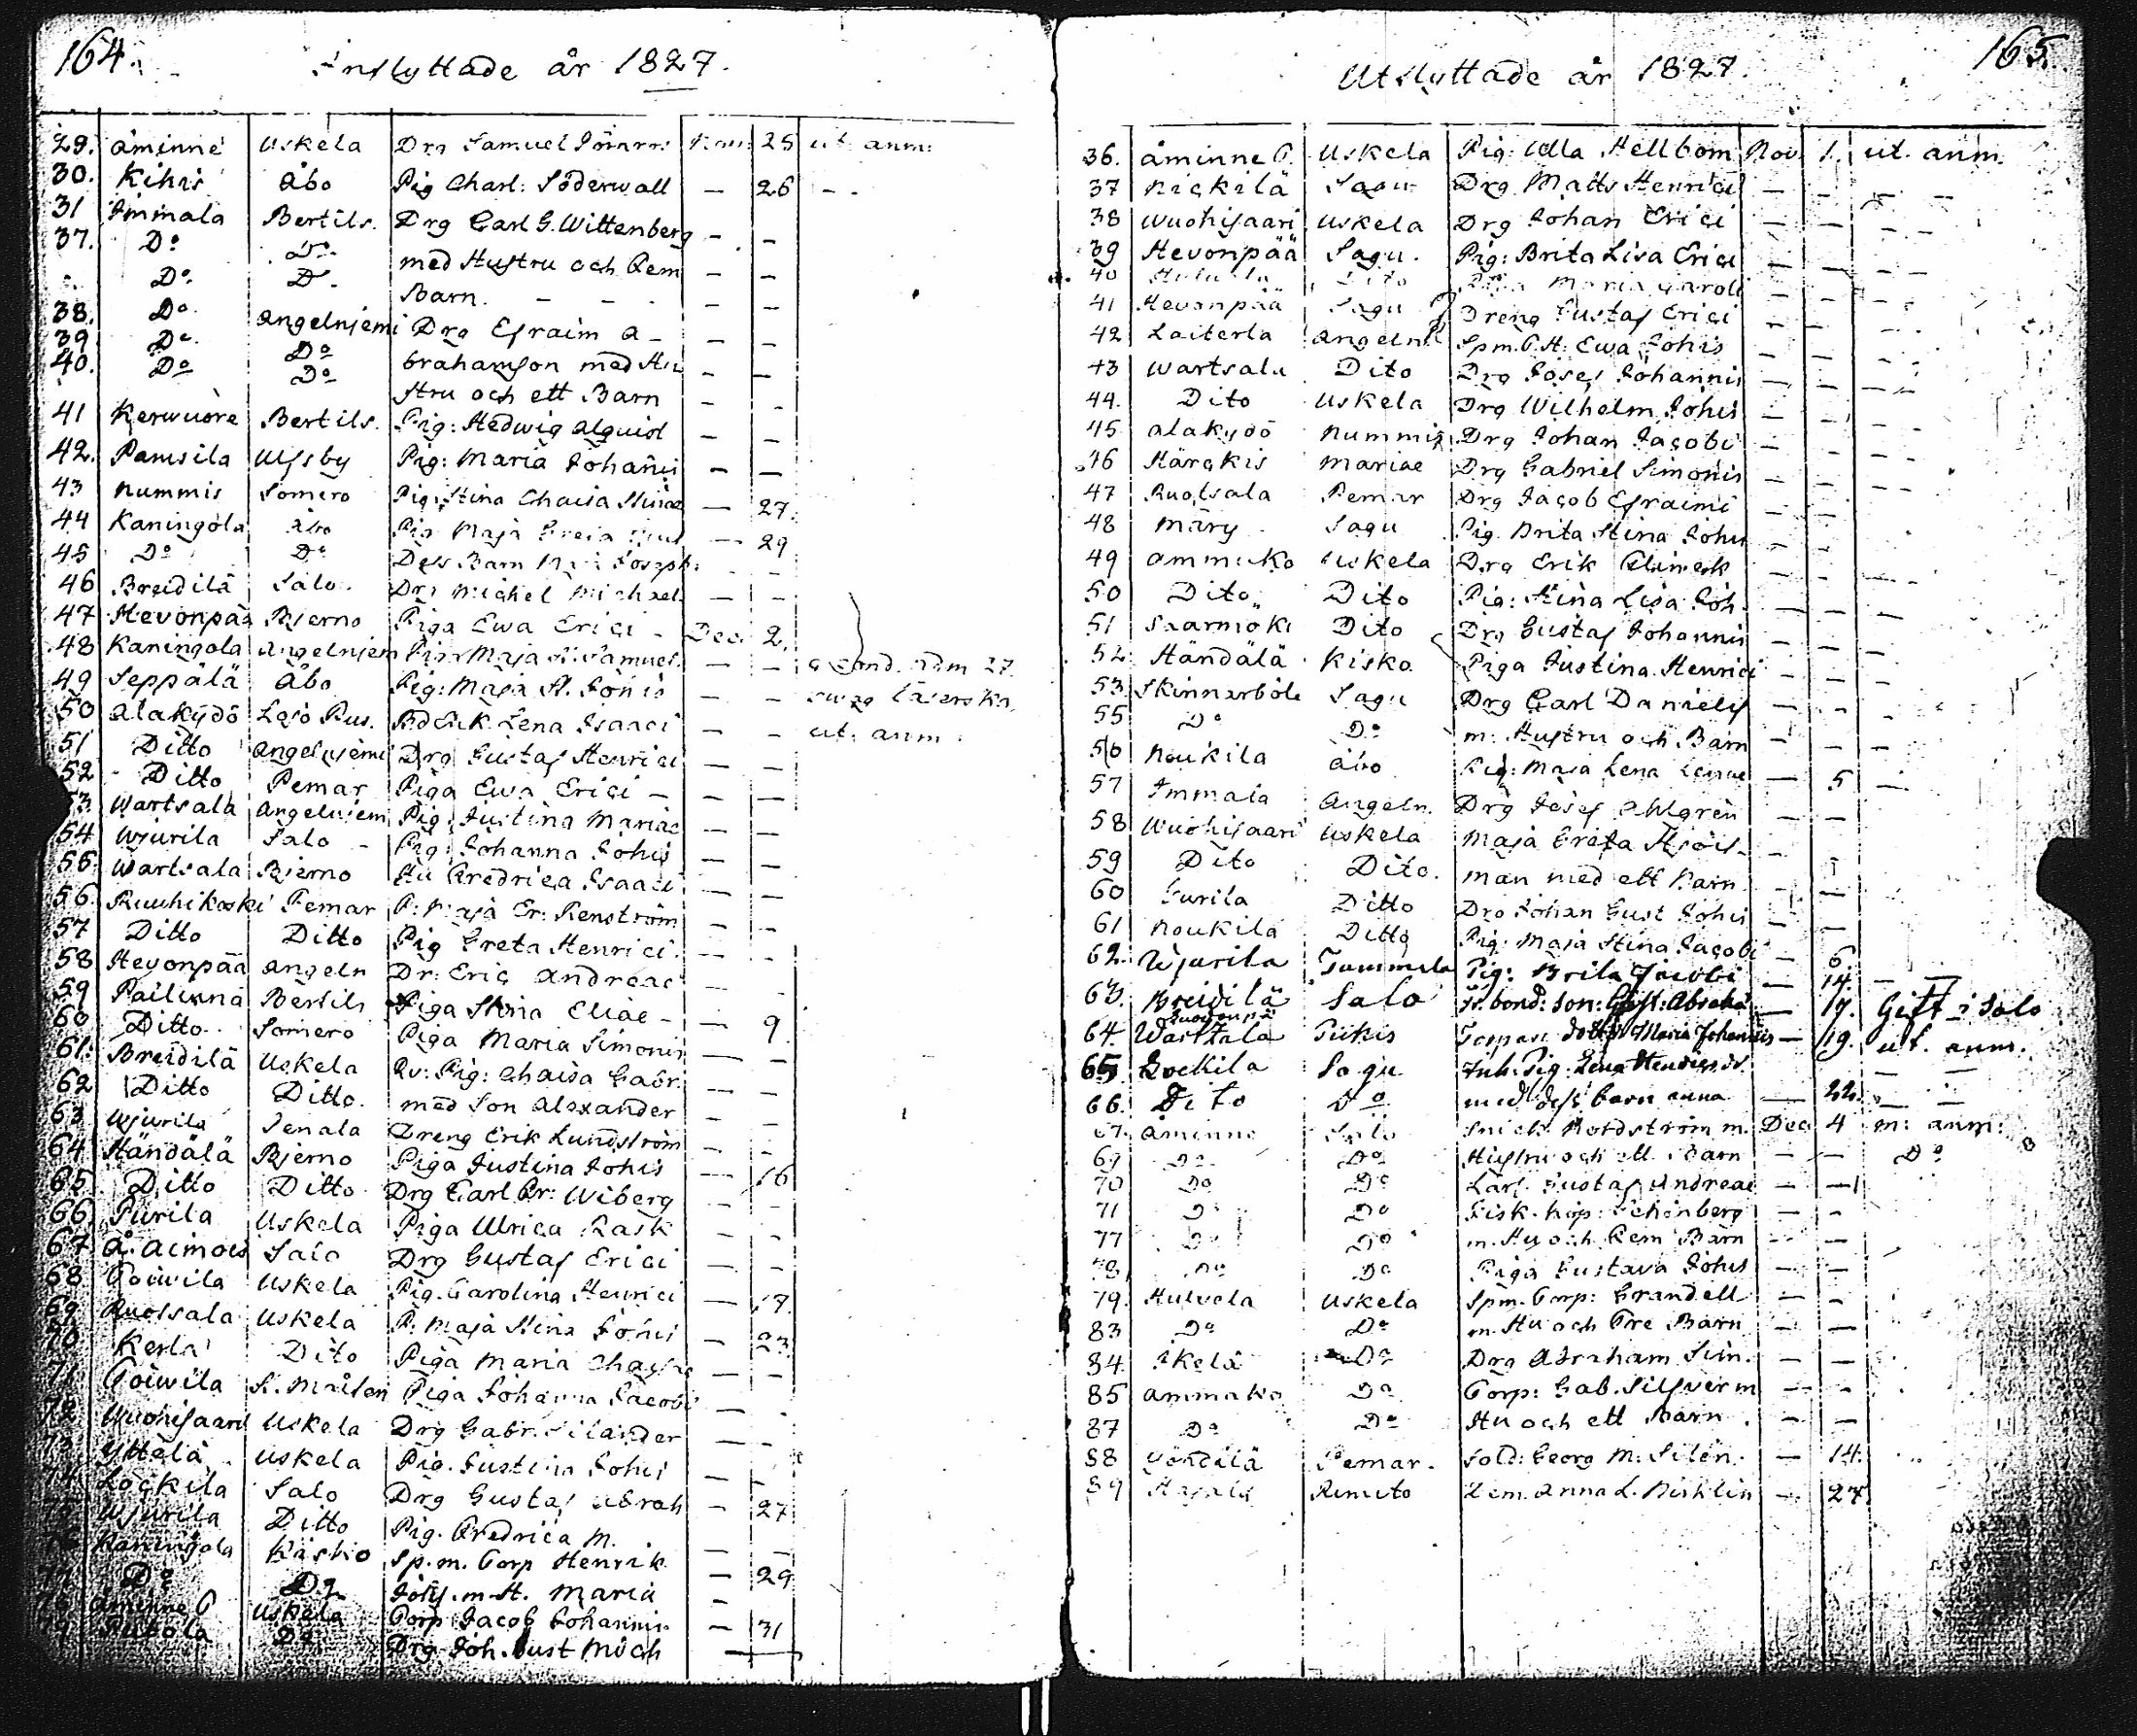 164.
Inflyttade år 1827.
29. åminne Uskela Drg Samuel 25 ut. anm:
30. Kihis Åbo Pig Charl: Söderwall — 26 — .
31 Immala Bertils. Drg Carl G. Wittenberg — —
37. Do Do med Hustru och Fem — —
Do D. Barn. — — — —
38. Do Angelnjemi Drg Efraim A- — —
39 Do. Do brahamson med Hu — —
40. Do Do stru och ett Barn — -
41 Kerwuore Bertils. Pig: Hedwig Alquist — —
42. Pamsila Ulfsby Pig: Maria Johanis — —
43 Nummis Somero Pig: Stina Chaisa — 27.
44 Kaningola Åbo Pig Maja Greta — 29
45 Do Do Dess Barn - -
46 Breidilä Salo. Drg Michel Michael. — —
47 Hevonpää Bjerno Piga Ewa Erici - Dec. 2.
48 Kaningola Angelnjem Piga Maja St: Samuel. — —
49 Seppälä Åbo Pig: Maja St. Johis — —
50 Alakydö Lena Isaaci — — ut. anm.
51 Ditto Angelnjemi Drg Gustaf Henrici — —
52 Ditto Pemar Piga Ewa Erici — — —
53. Wartsala Angelnjem Pig Justina Mariae — —
54 Wjurila Salo - Pig: Johanna Johis — —
55. Wartsala Bjerno Hu Fredrica Isaaci — —
56. Ruuhikoski Pemar P. Maja Er: Renström — —
57 Ditto Ditto Pig Greta Henrici. — —
58 Hevonpää Angeln Dr: Eric Andreae — —
59 Bertils Piga Stina Eliae — — —
60 Ditto. Somero Piga Maria Simonis — 9
61. Breidilä Uskela Qv: Pig: Chaisa Gabr. — —
62 Ditto Ditto. med Son Alexander — —
63 Wjurila Dreng Erik Lundström — —
64 Händälä Bjerno Piga Justina Johis — —
65 Ditto Ditto Drg Carl Fr: Wiberg — 16
66 Purila Uskela Piga Ulrica Rask — -
67 Salo Drg Gustaf Erici — -
68 Toiwila Uskela Pig. Carolina Henrici — —
69 Ruotsala Uskela P. Maja Stina Johis — 17.
70 Kerla Dito Piga Maria — 23
71 Toiwila St. Mårten Piga Johanna Jacobi — —
72 Wuohisaari Uskela Drg Gabr. Silander — -
73 Yttelä Uskela Pig. Justina Johis — —
74 Lockila Salo Drg Gustaf Abrah — -
75 Wjurila Ditto Pig. Fredrica M. — 27
76 Kaningola Kisko Sp. m. Torp Henrik — —
77 Do Do Johs. m. H. Maria — 29
78 Åminne Uskela Torp Jacob Johannis —
79 Do Drg Joh. Gust Mich — 31
165.
Utflyttade år 1827.
36. Åminne Uskela Pig: Ulla Hellbom Nov. 1. ut. anm.
37 Nickilä Sagu Drg Matts Henrici — — —
38 Wuohisaari Uskela Drg Johan Erici — — —
39 Hevonpää Sagu. Pig: Brita Lisa Erici — — —
40 Dito Maria Caroli — — —
41 Hevonpää Sagu Dreng Gustaf Erici — — —
42 Laiterla Angeln. Spm. Ewa Johis — — —
43 Wartsala Dito Drg Josef Johannis — — —
44. Dito Uskela Drg Wilhelm Johis — — —
45 Alakydö Nummis Drg Johan Jacobi — — —
46 Härckis Mariae Drg Gabriel Simonis — — —
47 Ruotsala Pemar Drg Jacob Efraimi — — —
48 Märy Sagu Pig. Brita Stina Johis — — —
49 Ammuko Uskela Drg Erik — — —
50 Dito Dito Pig: Stina Lisa Joh. — — —
51 Dito Drg Gustaf Johannis — — —
52 Händälä Kisko Piga Justina Henrici — — —
53 Skinnarböle Sagu Drg Carl Daniels — — —
55 Do Do m: Hustru och Barn — — —
56 Noukila Åbo Pig: Maja Lena — 5 —
57 Immala Angeln. Drg Josef Ahlgren — —
58 Wuohisaari Uskela Maja Greta —
59 Dito Dito. man med ett Barn — —
60 Purila Ditto Drg Johan Gust Johis — —
61 Noukila Ditto Pig: Maja Stina Jacobi — 6
62. Wjurila Tammela Pig: Brita Jacobi — 14. —
63. Breidilä Salo bond: son: Gust: Abrah — 17. Gift i Salo
64. Wartsala Pikis Torpare dotter Maria Johannis — 19. ut. anm.
65 Lockila Sagu Inh. Pig: Lena — —
66. Dito Do med dess barn Anna — 22. — —
67. Åminne Salo Snick. Nordström m. Dec 4 m: anm:
69 Do Do Hustru och ett Barn — — Do
70 Do Do Lärl. Gustaf Andreae — —
71 Do Do Fisk. köp: Schönberg — -
77 Do Do m. Hu och Fem Barn — -
78 Do Do Piga Gustava Johis — —
79. Hulvela Uskela Spm. Torp: Grandell — -
83 Do Do m. Hu och Tre Barn — —
84. Ikelä Do Drg Abraham Sim. — —
85 Ammako Do Torp: Gab. Silfver m — -
87 Do Do Hu och ett Barn. — —
88 Yöndilä Pemar. Sold: Georg M. Silén. — 14.
89 Rimito Anna L. — 27.